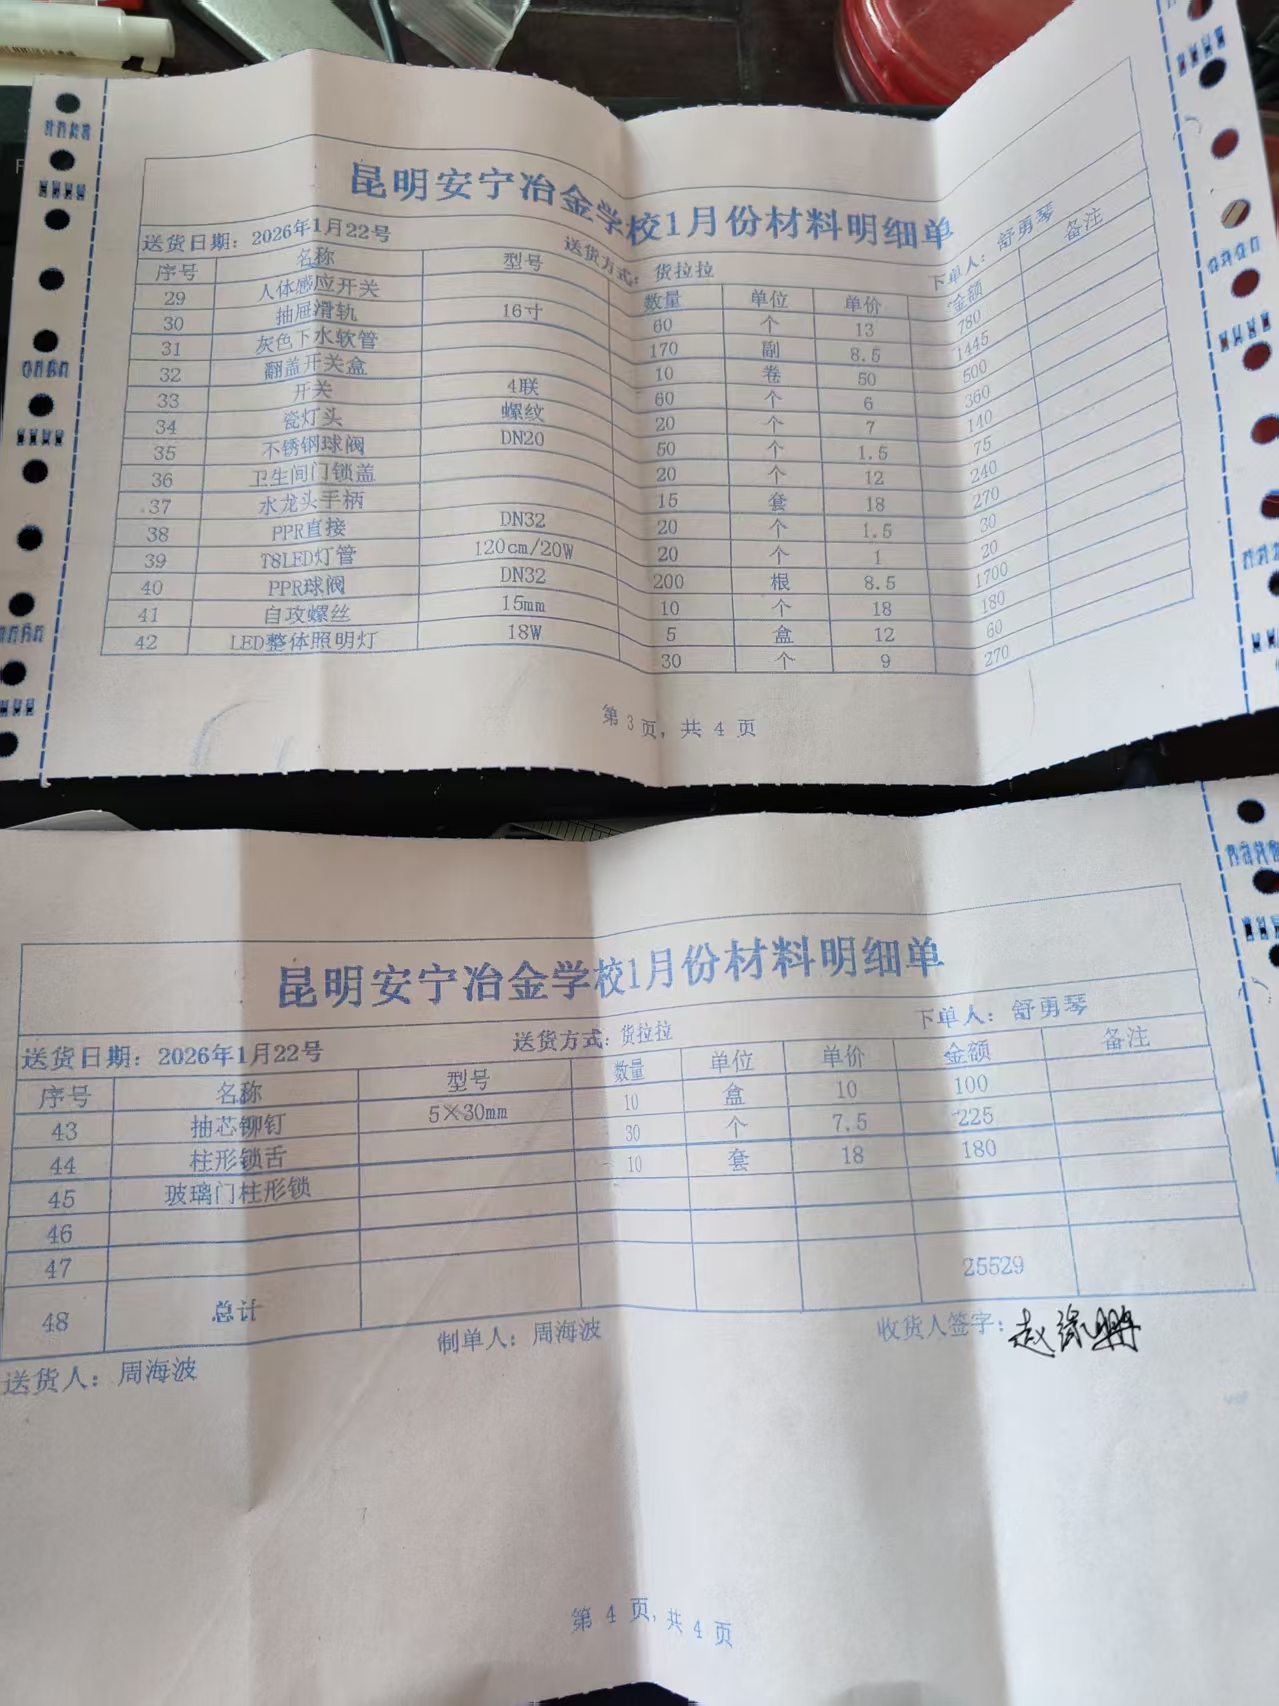 昆明安宁冶金学校1月份材料明细单
送货日期：2026年1月22号 送货方式：货拉拉 下单人：舒勇琴
序号 名称 型号 数量 单位 单价 金额 备注
29 人体感应开关 60 个 13 780
30 抽屉滑轨 16寸 170 副 8.5 1445
31 灰色下水软管 10 卷 50 500
32 翻盖开关盒 60 个 6 360
33 开关 4联 20 个 7 140
34 瓷灯头 螺纹 50 个 1.5 75
35 不锈钢球阀 DN20 20 个 12 240
36 卫生间门锁盖 15 套 18 270
37 水龙头手柄 20 个 1.5 30
38 PPR直接 DN32 20 个 1 20
39 T8LED灯管 120cm/20W 200 根 8.5 1700
40 PPR球阀 DN32 10 个 18 180
41 自攻螺丝 15mm 5 盒 12 60
42 LED整体照明灯 18W 30 个 9 270
第 3 页，共 4 页
昆明安宁冶金学校1月份材料明细单
送货日期：2026年1月22号 送货方式：货拉拉 下单人：舒勇琴
序号 名称 型号 数量 单位 单价 金额 备注
43 抽芯铆钉 5×30mm 10 盒 10 100
44 柱形锁舌 30 个 7.5 225
45 玻璃门柱形锁 10 套 18 180
46
47
48 总计 25529
送货人：周海波 制单人：周海波 收货人签字：
第 4 页，共 4 页